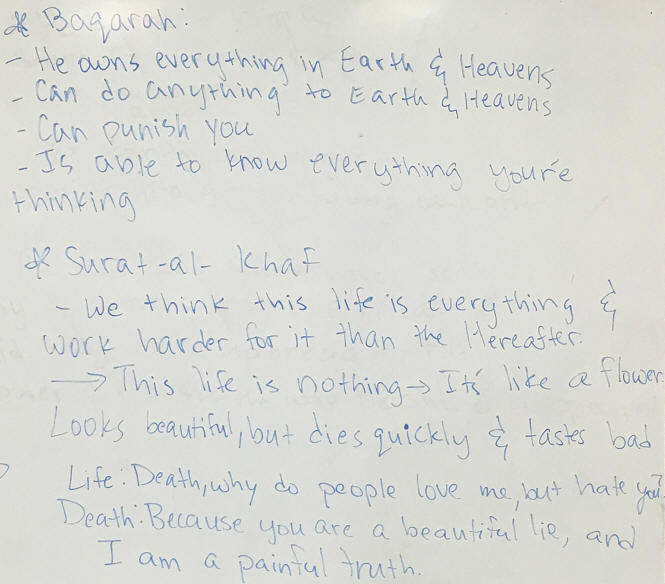 * Baqarah:
- He owns everything in Earth & Heavens
- Can do anything to Earth & Heavens
- Can punish you
- Is able to know everything you're
thinking
* Surat-al-Khaf
- We think this life is everything &
work harder for it than the Hereafter.
→ This life is nothing → Its' like a flower.
Looks beautiful, but dies quickly & tastes bad
Life: Death, why do people love me, but hate you?
Death: Because you are a beautiful lie, and
I am a painful truth.